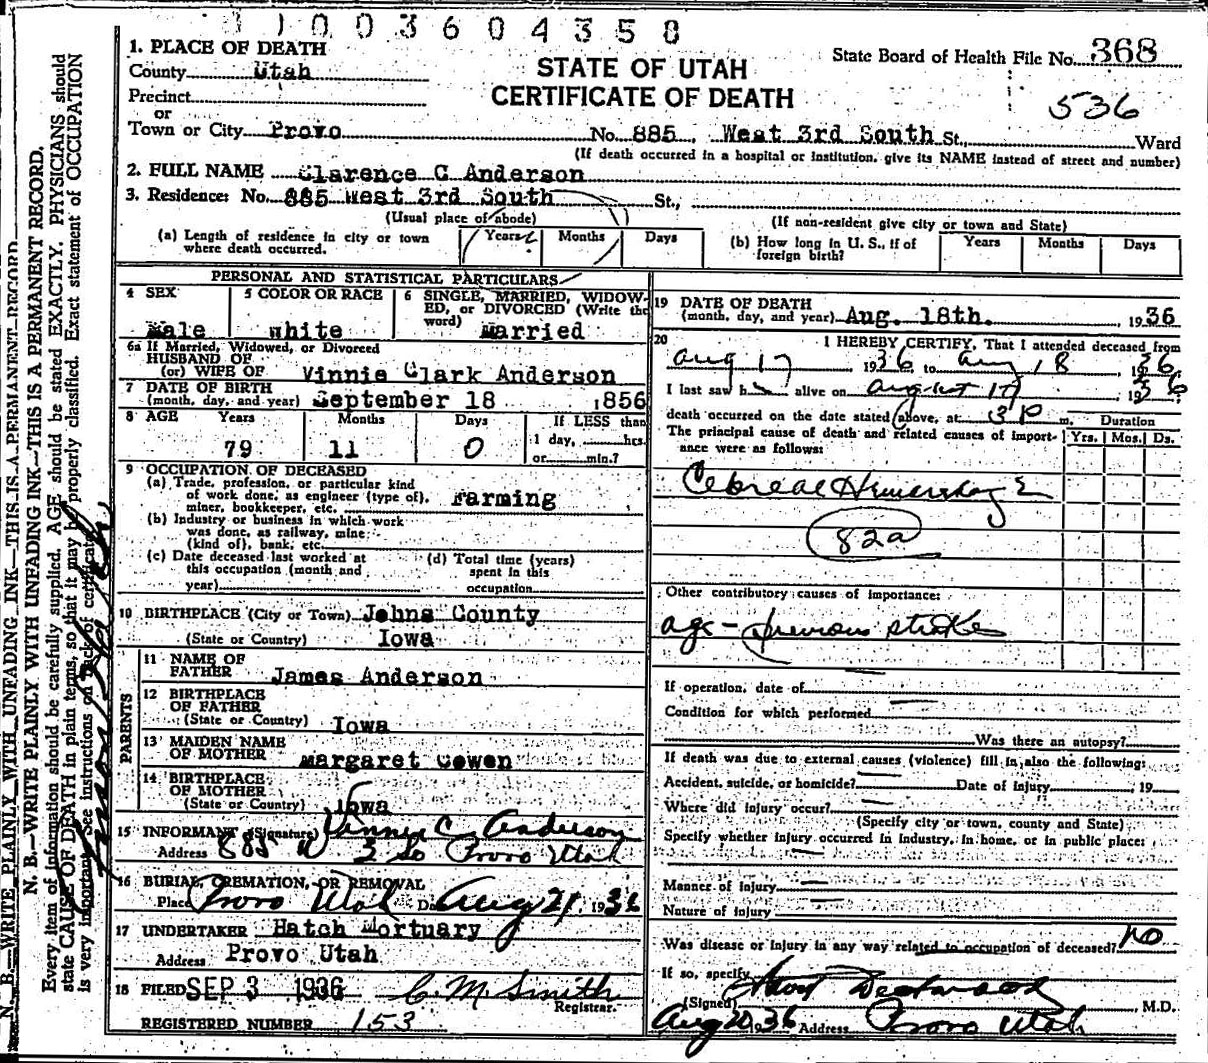 31003604358
1. PLACE OF DEATH
County Utah
STATE OF UTAH
CERTIFICATE OF DEATH
State Board of Health File No. 368
536
Precinct
or
Town or City Provo No. 885 West 3rd South St., Ward
(If death occurred in a hospital or institution, give its NAME instead of street and number)
2. FULL NAME Clarence C Anderson
3. Residence: No. 885 West 3rd South St.,
(Usual place of abode)
(If non-resident give city or town and State)
(a) Length of residence in city or town where death occurred.
Years Months Days
(b) How long in U. S., if of foreign birth?
Years Months Days
PERSONAL AND STATISTICAL PARTICULARS
4 SEX
Male
5 COLOR OR RACE
White
6 SINGLE, MARRIED, WIDOW-
ED, or DIVORCED (Write the
word) Married
6a If Married, Widowed, or Divorced
HUSBAND OF
(or) WIFE OF Vinnie Clark Anderson
7 DATE OF BIRTH
(month, day, and year) September 18 1856
8 AGE Years Months Days If LESS than
79 11 0 1 day, hrs.
or min.?
9 OCCUPATION OF DECEASED
(a) Trade, profession, or particular kind
of work done, as engineer (type of),
miner, bookkeeper, etc. Farming
(b) Industry or business in which work
was done, as railway, mine
(kind of), bank, etc.
(c) Date deceased last worked at
this occupation (month and
year)
(d) Total time (years)
spent in this
occupation
10 BIRTHPLACE (City or Town) Johns County
(State or Country) Iowa
PARENTS
11 NAME OF
FATHER James Anderson
12 BIRTHPLACE
OF FATHER
(State or Country) Iowa
13 MAIDEN NAME
OF MOTHER Margaret Cowen
14 BIRTHPLACE
OF MOTHER
(State or Country) Iowa
15 INFORMANT (Signature) Vinnie C. Anderson
Address 885 W 3 So Provo Utah
16 BURIAL, CREMATION, OR REMOVAL
Place Provo Utah Date Aug 21, 1936
17 UNDERTAKER Hatch Mortuary
Address Provo Utah
18 FILED SEP 3 1936 C. M. Smith
Registrar.
REGISTERED NUMBER 153
19 DATE OF DEATH
(month, day, and year) Aug. 18th. 1936
20 I HEREBY CERTIFY, That I attended deceased from
Aug 17 1936 to Aug 18, 1936.
I last saw h alive on August 17 1936
death occurred on the date stated above, at 3 P m.
The principal cause of death and related causes of import-
ance were as follows:
Duration
Yrs. Mos. Ds.
Cebreal Hemershage
82a
Other contributory causes of importance:
age - previous stroke
If operation, date of
Condition for which performed
Was there an autopsy?
If death was due to external causes (violence) fill in also the following:
Accident, suicide, or homicide? Date of Injury 19
Where did injury occur?
(Specify city or town, county and State)
Specify whether injury occurred in industry, in home, or in public place:
Manner of Injury
Nature of injury
Was disease or injury in any way related to occupation of deceased? no
If so, specify
(Signed) Westwood M.D.
Aug 20 1936 Address Provo Utah
N. B.—WRITE PLAINLY WITH UNFADING INK—THIS IS A PERMANENT RECORD
N. B.—WRITE PLAINLY WITH UNFADING INK—THIS IS A PERMANENT RECORD.
Every item of information should be carefully supplied. AGE should be stated EXACTLY. PHYSICIANS should
state CAUSE OF DEATH in plain terms, so that it may be properly classified. Exact statement of OCCUPATION
is very important. See instructions on back of certificate.